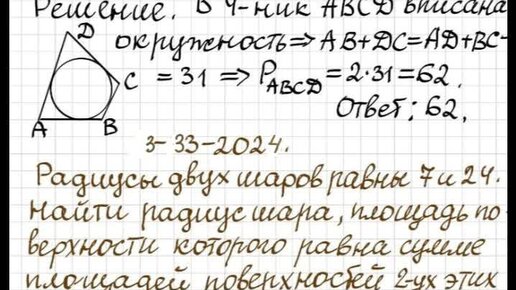 Решение. В 4-ник ABCD вписана
окружность ⇒ AB+DC=AD+BC=
= 31 ⇒ P_ABCD = 2·31=62.
Ответ: 62.
D
C
A
B
3-33-2024.
Радиусы двух шаров равны 7 и 24.
Найти радиус шара, площадь по-
верхности которого равна сумме
площадей поверхностей 2-ух этих